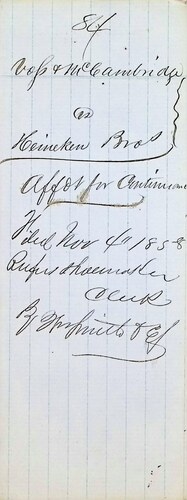 84
Voss & McCambridge
vs
Heineken Bros
Affdt for Continuance
Filed Nov 4th 1858
Rufus Shoemaker
Clerk
By